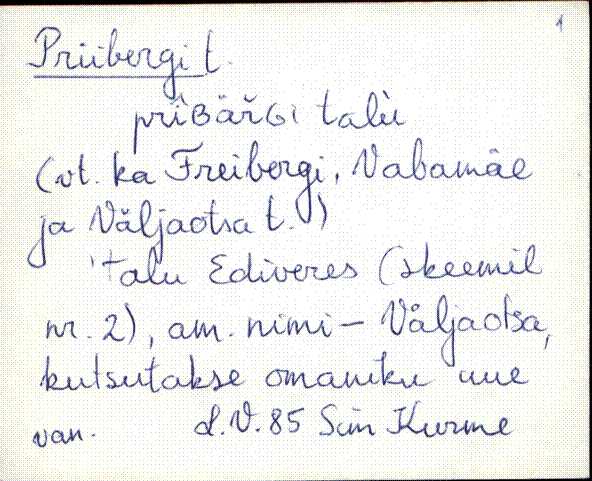 1
Priibergi t.
prîBäřGi talù
(vt. ka Freibergi, Vabamäe
ja Väljaotsa t.)
talu Ediveres (skeemil
nr. 2), am. nimi - Väljaotsa,
kutsutakse omaniku uue
van. d.V.85 Siin Kurme